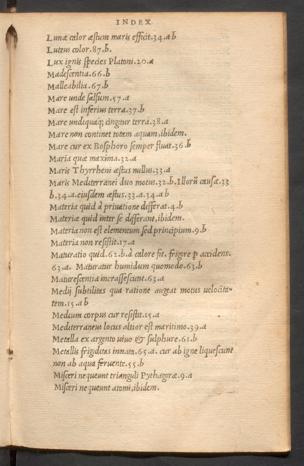 INDEX
Lunæ calor æstum maris efficit.34.a b
Luteus color.87.b.
Lux ignis species Platoni.20.a
Madescentia.66.b
Malleabilia.67.b
Mare unde salsum.57.a
Mare est inferius terra.37.b
Mare undiquaq; cingitur terra.38.a
Mare non continet totam aquam, ibidem.
Mare cur ex Bosphoro semper fluat.36.b
Maria quæ maxima.32.a
Maris Thyrrheni æstus nullus.33.a
Maris Mediterranei duo motus.32.b. Illorũ causæ.33
b.34.a. eiusdem æstus.33.a.34.a b
Materia quid à priuatione differat.4.b
Materiæ quid inter se differant, ibidem.
Materia non est elementum sed principium.9.b
Materia non resistit.17.a
Maturatio quid.62.b. à calore fit, frigore p accidens.
63.a. Maturatur humidum quomodo.63.b
Maturescentia incrassescunt.63.a
Medij subtilitas qua ratione augeat motus velocita-
tem.15.a b
Medium corpus cur resistit.15.a
Mediterraneus locus altior est maritimo.39.a
Metalla ex argento uiuo & sulphure.61.b
Metallis frigiditas innata.65.a. cur ab igne liquescunt
non ab aqua feruente.55.b
Misceri nequeunt trianguli Pythagoræ.9.a
Misceri nequeunt atomi, ibidem.